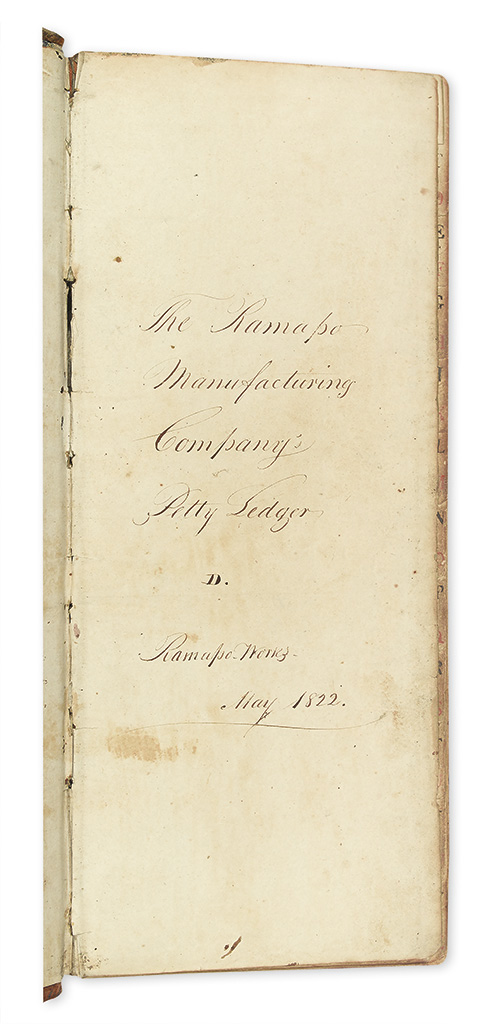 The Ramapo
Manufacturing
Company's
Petty Ledger
D.
Ramapo Works
May 1822.
E
G
I
L
N
P
R
T